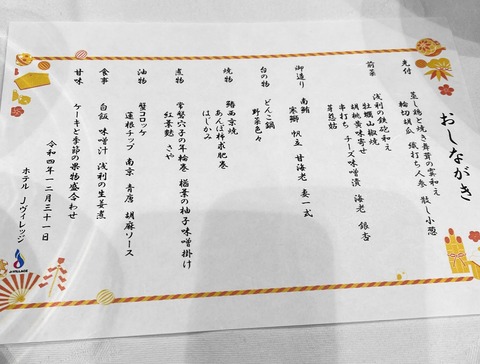 おしながき
先付
蒸し鶏と焼き舞茸の雲和え
輪切胡瓜 織打ち人参 散し小葱
前菜
浅利の鉄砲和え
牡蠣山椒焼
胡桃黄味寄せ
串打ち チーズ味噌漬 海老 銀杏
御造り
南鮪 寒鰤 帆立 甘海老 妻一式
台の物
どんこ鍋
野菜色々
焼物
鰆西京焼
あんぽ柿求肥巻
はじかみ
煮物
常磐穴子の年輪巻 楢葉の柚子味噌掛け
紅葉麩 さや
油物
蟹コロッケ
蓮根チップ 南京 青唐 胡麻ソース
食事
白飯 味噌汁 浅利の生姜煮
甘味
ケーキと季節の果物盛合わせ
令和四年一二月三十一日
ホテル Jヴィレッジ
J-VILLAGE